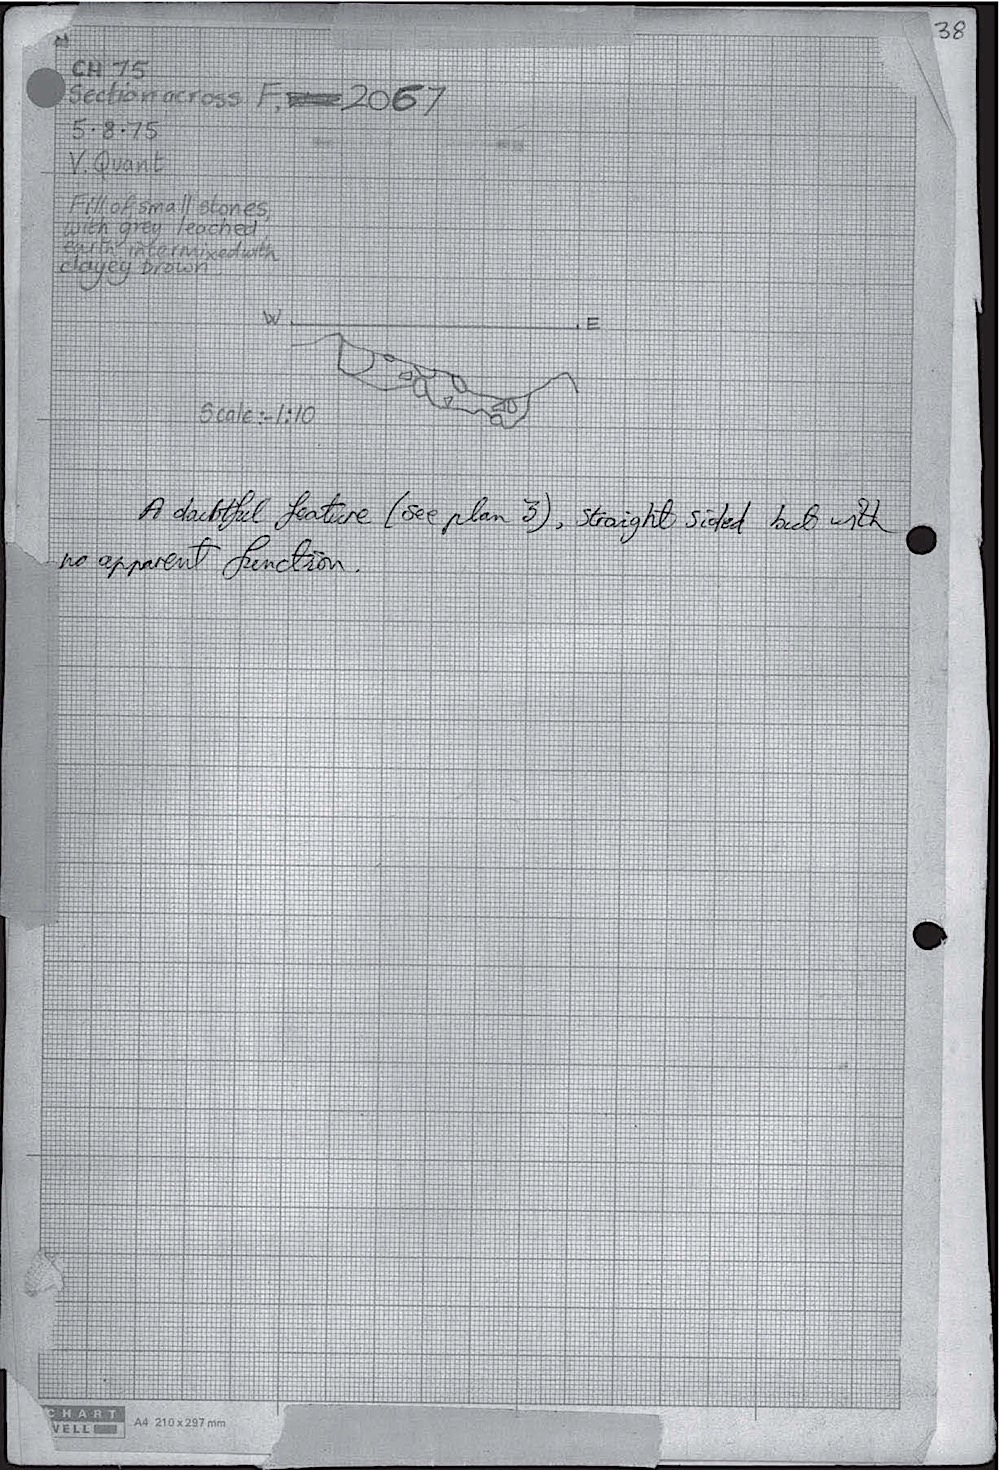 38
CH 75
Section across F. 2067
5.8.75
V. Quant
Fill of small stones,
with grey leached
earth intermixed with
clayey brown.
W E
Scale:- 1:10
A doubtful feature (see plan 3), straight sided but with
no apparent function.
CHART
WELL
A4 210 x 297 mm